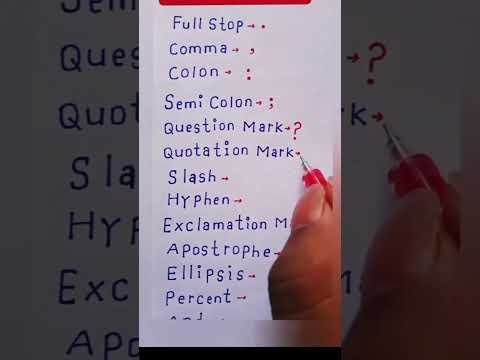 Full Stop → .
Comma → ,
Colon → :
Semi Colon → ;
Question Mark → ?
Quotation Mark →
Slash →
Hyphen →
Exclamation M
Apostrophe →
Ellipsis →
Percent →